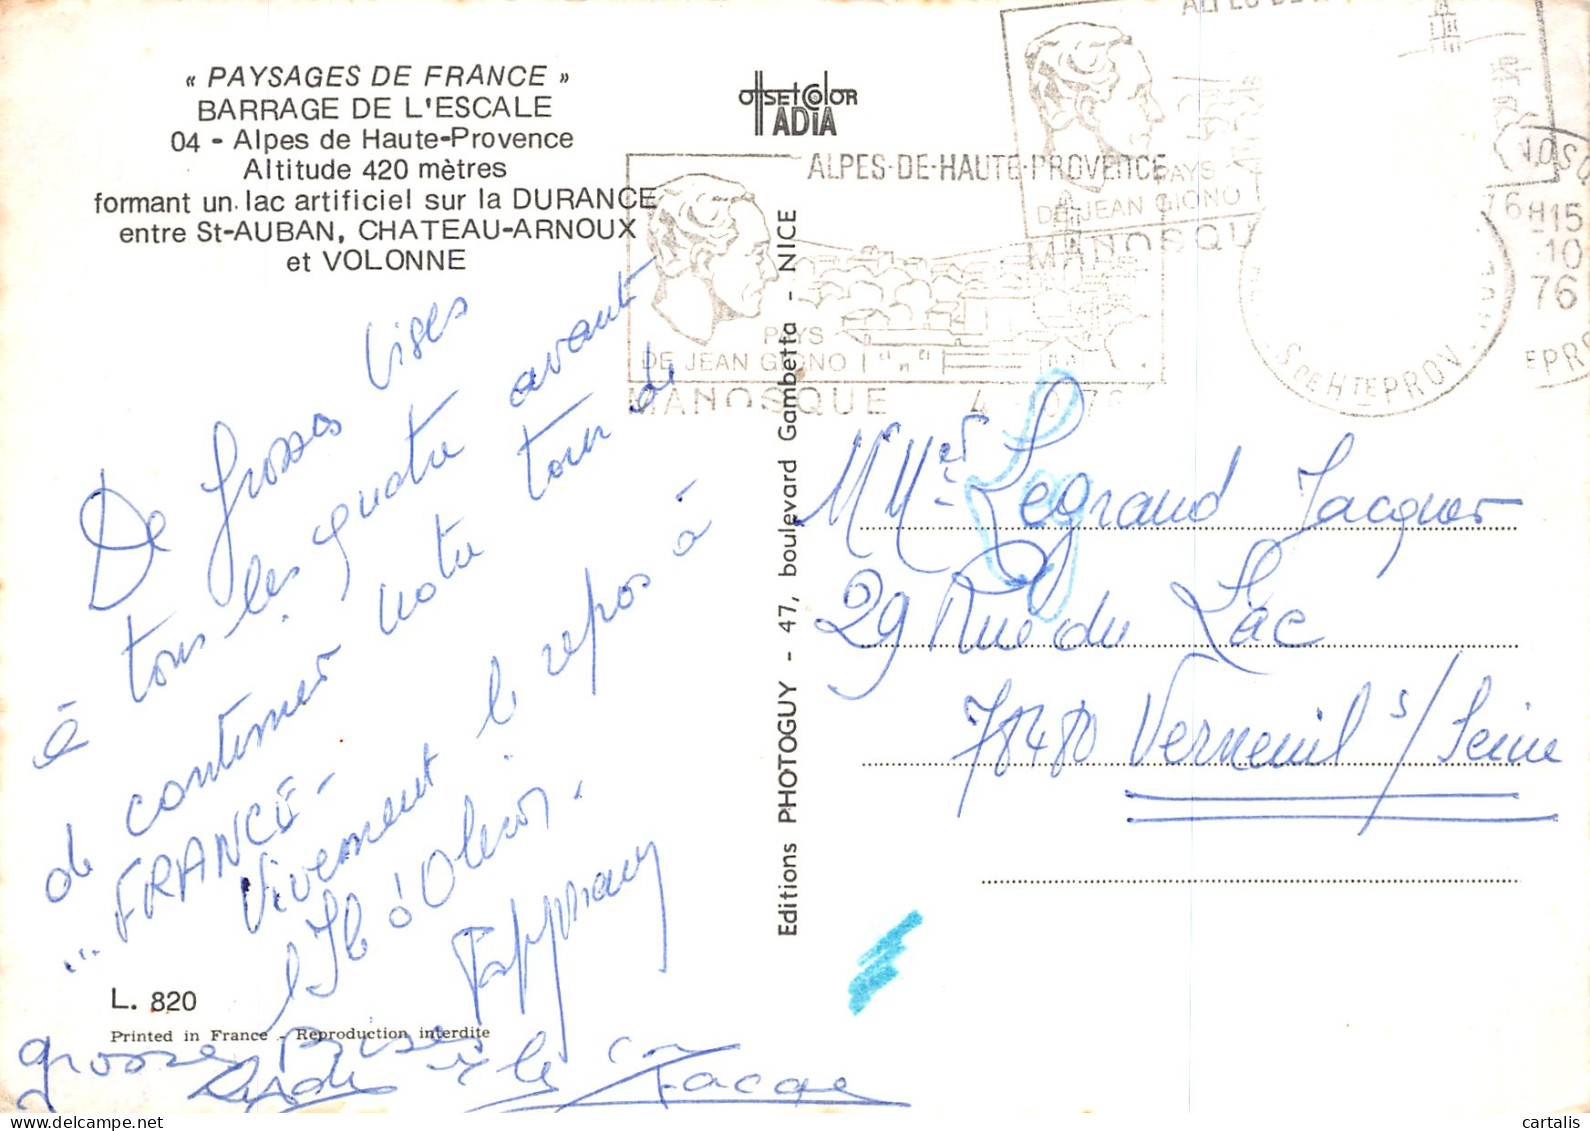 « PAYSAGES DE FRANCE »
BARRAGE DE L'ESCALE
04 - Alpes de Haute-Provence
Altitude 420 mètres
formant un lac artificiel sur la DURANCE
entre St-AUBAN, CHATEAU-ARNOUX
et VOLONNE
OffSEt COlOR
ADIA
ALPES-DE-HAUTE-PROVENCE
PAYS
DE JEAN GIONO
MANOSQUE
PAYS
DE JEAN GIONO
MANOSQUE
H15
10
76
S DE HTE PROV
De grosses bises
à tous les quatre avant
de continuer notre tour de
... FRANCE -
Vivement le repos à
l'Ile d'Oléron.
grosses Bises
Editions PHOTOGUY - 47, boulevard Gambetta - NICE
Legrand Jacques
29 Rue du Lac
78480 Verneuil s/ Seine
L. 820
Printed in France - Reproduction interdite
cartalis